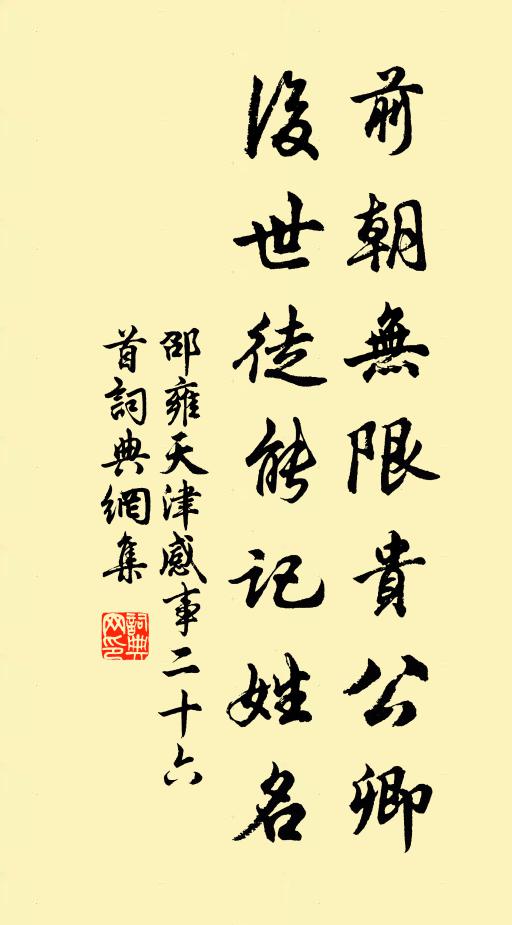 前朝無限貴公卿
後世徒能記姓名
邵雍天津感事二十六
首詞典網集
詞典网印